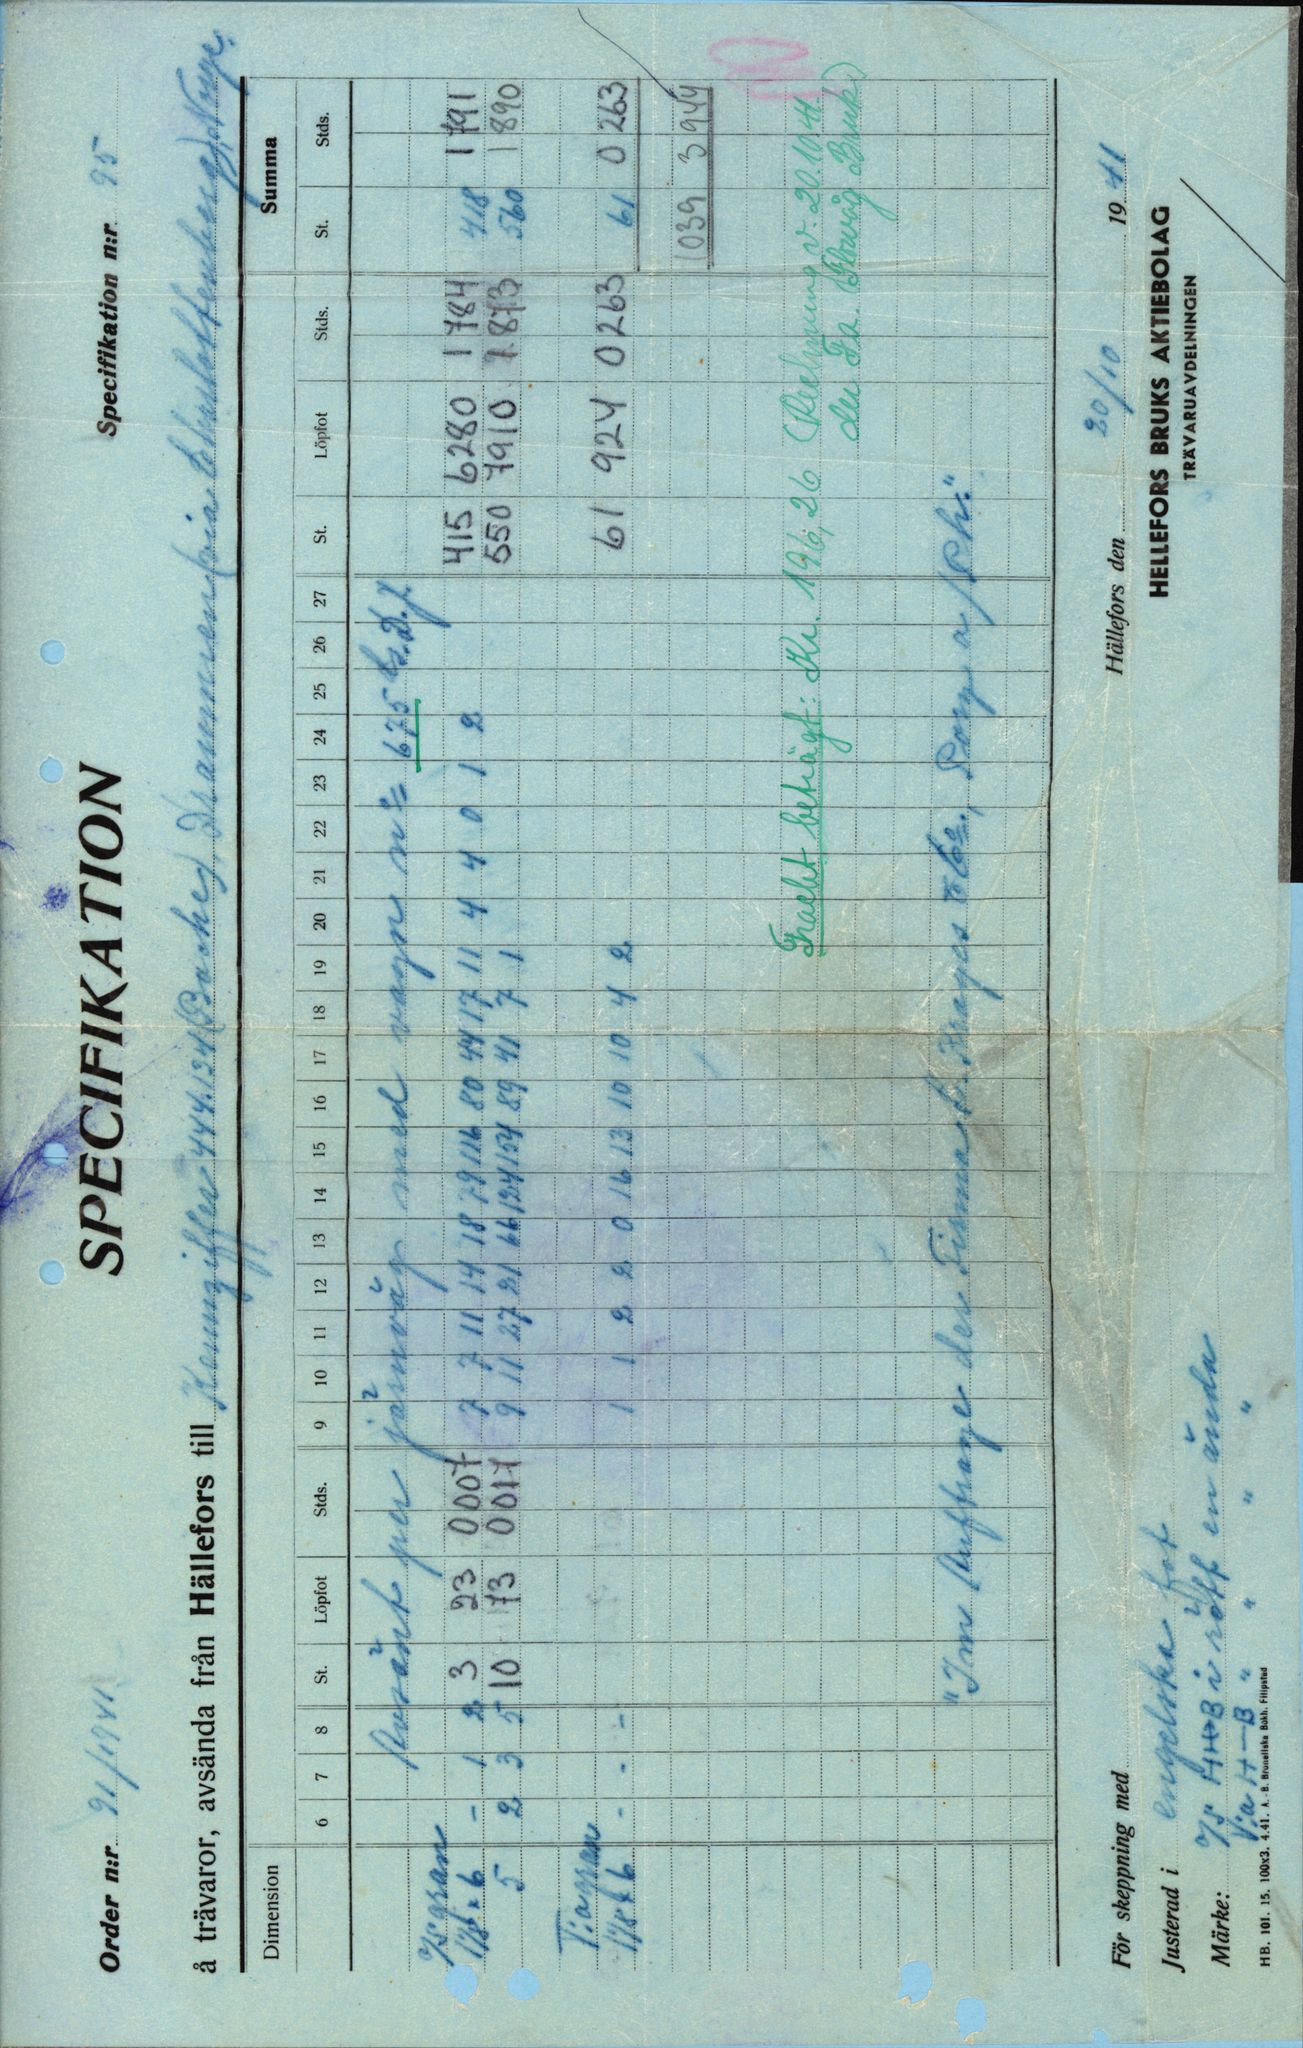 SPECIFIKATION
Order n:r 91/1941
Specifikation n:r 95
å trävaror, avsända från Hällefors till Kennziffer 444.134 (Bache) Drammen (via Charlottenberg) Norge.
Dimension 6 7 8 St. Löpfot Stds. 9 10 11 12 13 14 15 16 17 18 19 20 21 22 23 24 25 26 27 St. Löpfot Stds. Summa St. Stds.
Avsänt per järnväg med vagn nº 675
o/s gran
1 1/8 x 6 - 1 2 3 23 0007 7 7 11 14 18 79 116 80 44 17 11 4 4 0 1 2 415 6280 1784 418 1791
5 2 3 5 10 73 0017 9 11 27 21 66 124 154 89 41 7 1 550 7910 1873 560 1890
V:a gran
1 1/8 x 6 - - - 1 1 2 2 0 16 13 10 10 4 2 61 924 0263 61 0263
1039 3944
Fracht beträgt: Kr. 196,26 (Rechnung v. 20.10.41.
der Fa. Bruk)
"Im Auftrage der Firma
För skeppning med
Hällefors den 20/10 1941
Justerad i engelska fot
HELLEFORS BRUKS AKTIEBOLAG
TRÄVARUAVDELNINGEN
Märke: o/s H+B i rött en ända
V:a H—B " " " "
HB. 101. 15. 100x3. 4.41. A.-B. Bronellska Bokh. Filipstad